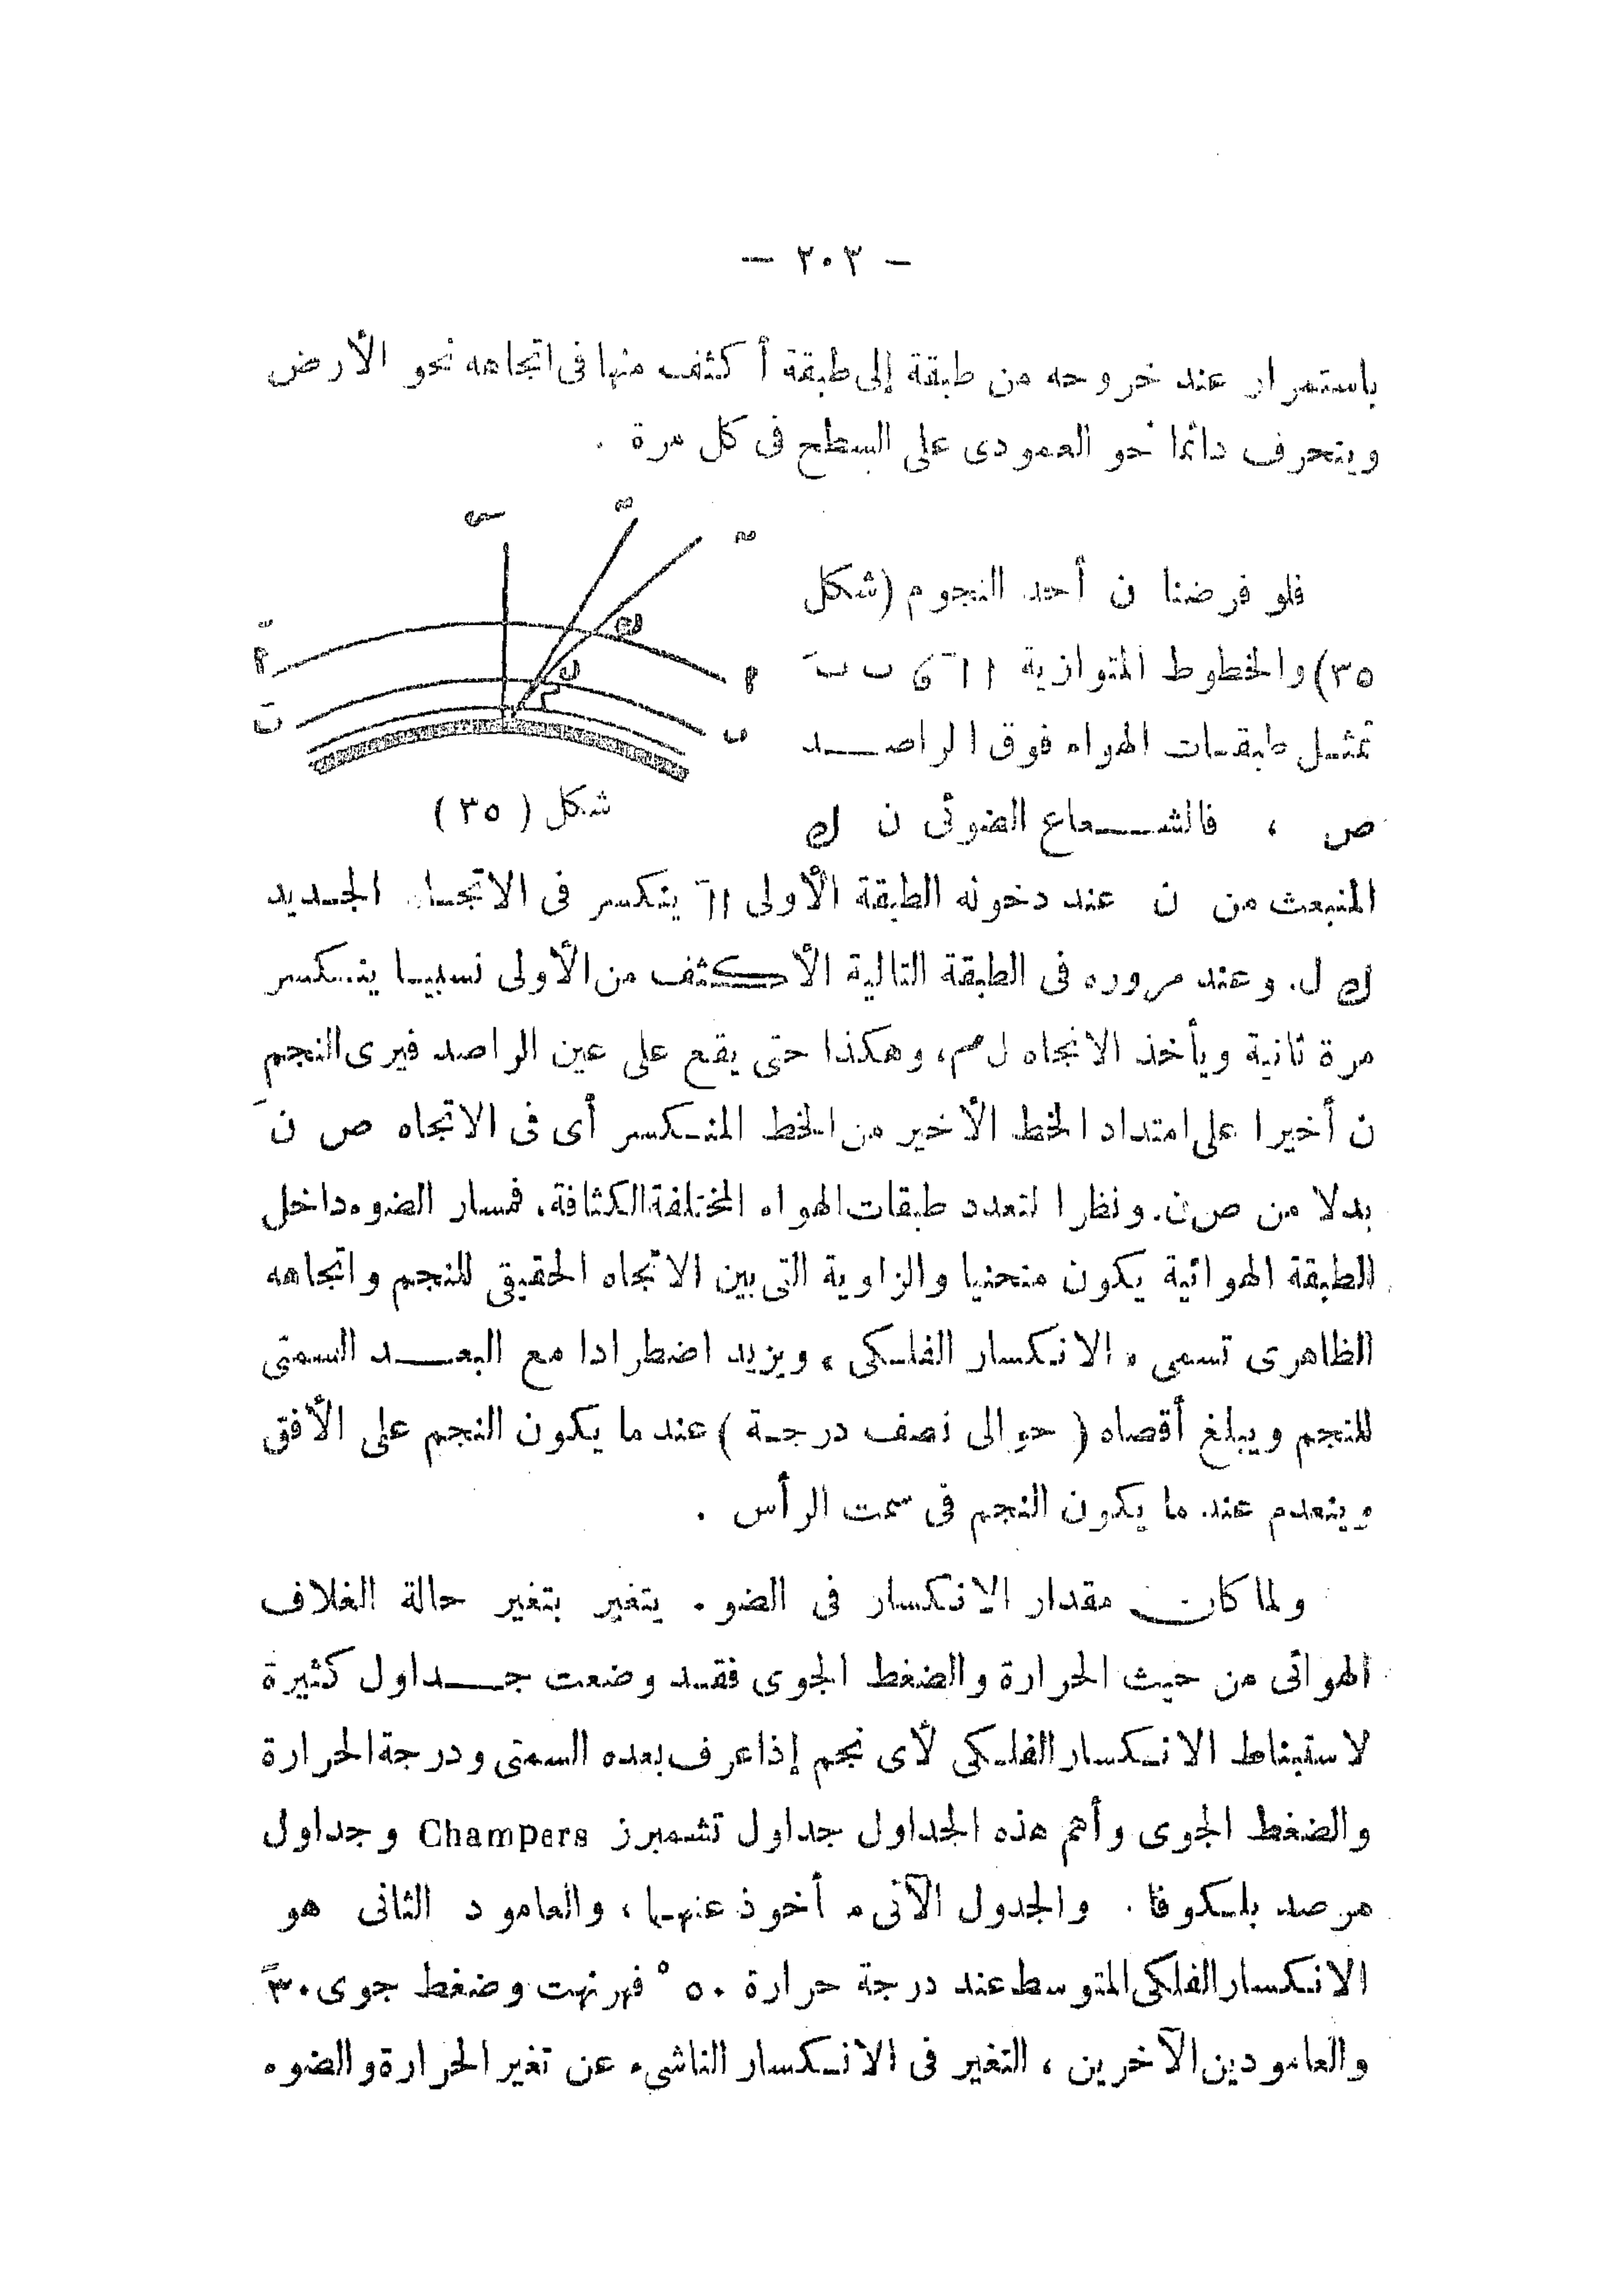 — ٢٠٣ —
باستمرار عند خروجه من طبقة إلى طبقة أكثف منها فى اتجاهه نحو الأرض
ويتحرف دائما نحو العمودى على السطح فى كل مرة .
فلو فرضنا ن أحد النجوم (شكل
٣٥) والخطوط المتوازية ا اَ ، ب بَ
تمثل طبقات الهواء فوق الراصد
ص ، فالشعاع الضوئى ن ك
شكل ( ٣٥ )
المنبعث من ن عند دخونه الطبقة الأولى ا اَ ينكسر فى الاتجاه الجديد
ك ل. وعند مروره فى الطبقة التالية الأكثف من الأولى نسبيا ينكسر
مرة ثانية ويأخذ الاتجاه ل م، وهكذا حتى يقع على عين الراصد فيرى النجم
ن أخيرا على امتداد الخط الأخير من الخط المنكسر أى فى الاتجاه ص نَ
بدلا من ص ن. ونظرا لتعدد طبقات الهواء المختلفة الكثافة، فمسار الضوء داخل
الطبقة الهوائية يكون منحنيا والزاوية التى بين الاتجاه الحقيقى للنجم واتجاهه
الظاهرى تسمى « الانكسار الفلكى » ويزيد اضطرادا مع البعد السمتى
للنجم ويبلغ أقصاه ( حوالى نصف درجة ) عند ما يكون النجم على الأفق
وينعدم عند ما يكون النجم فى سمت الرأس .
ولما كان مقدار الانكسار فى الضوء يتغير بتغير حالة الغلاف
الهوائى من حيث الحرارة والضغط الجوى فقد وضعت جداول كثيرة
لاستنباط الانكسار الفلكى لأى نجم إذا عرف بعده السمتى ودرجة الحرارة
والضغط الجوى وأهم هذه الجداول جداول تشمبرز Champers وجداول
مرصد بلكوفا . والجدول الآتى مأخوذ عنها ، والعامود الثانى هو
الانكسار الفلكى المتوسط عند درجة حرارة ٥٠° فهرنهت وضغط جوى ٣٠ً
والعامودين الآخرين ، التغير فى الانكسار الناشىء عن تغير الحرارة والضوء